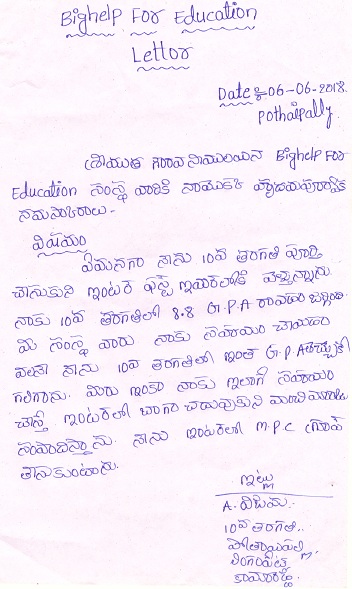 Bighelp For Education
Lettor
Date :- 06-06-2018.
Pothaipally.
శ్రీయుత గౌరవనీయులయిన Bighelp For
Education సంస్థ వారికి నాయొక్క హృదయపూర్వక
నమస్కారాలు.-
విషయం
ఏమనగా నేను 10వ తరగతి పూర్తి
చేసుకుని ఇంటర్ ఫస్ట్ ఇయర్‌లోకి వెళ్తున్నాను.
నాకు 10వ తరగతిలో 8.8 G.P.A రావడం జరిగింది.
మీ సంస్థ వారు నాకు సహాయం చేయడం
వలన నేను 10వ తరగతిలో ఇంత G.P.A తెచ్చుకో
గలిగాను. మీరు ఇంకా నాకు ఇలాగే సహాయం
చేస్తే. ఇంటర్‌లో బాగా చదువుకుని మంచి మార్కులు
సంపాదిస్తాను. నేను ఇంటర్‌లో M.P.C గ్రూప్
తీసుకుంటాను.
ఇట్లు
A.
10వ తరగతి..
పోతాయిపల్లి
లింగంపేట్
కామారెడ్డి.